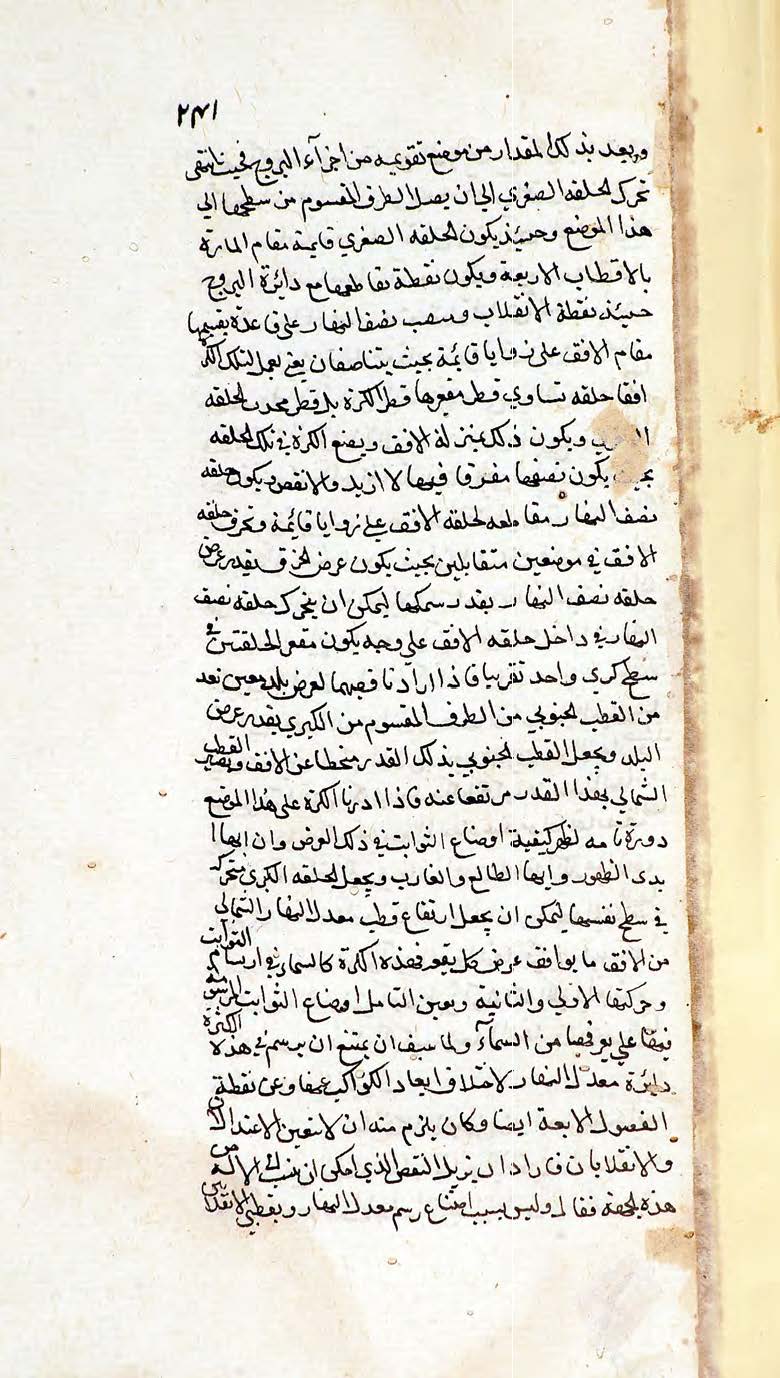 ٢٤١
وبعد بذلك المقدار من موضع تقويمه من اجزآء البروج فحيث انتهى
تحرك الحلقه الصغري الي ان يصل الطرف المقسوم من سطحها الي
هذا الموضع وحينئذ يكون الحلقه الصغري قايمة مقام المارة
بالاقطاب الاربعة ويكون نقطة تقاطعها مع دائرة البروج
حينئذ نقطة الانقلاب وينصب نصف النهار على قاعدة يقيمها
مقام الافق على زوايا قائمة بحيث يتناصفان يعني يعمل لتلك الكرة
افقا حلقه تساوي قطر مقعرها قطر الكرة بل قطر محدب الحلقه
ويكون ذلك بمنزلة الافق ويضع الكرة في تلك الحلقه
بحيث يكون نصفها مغرقا فيها لا ازيد ولا انقص ويكون حلقه
نصف النهار مقاطعه لحلقه الافق على زوايا قائمة وتخرق حلقه
الافق في موضعين متقابلين بحيث يكون عرض الخرق بقدر عرض
حلقه نصف النهار بقدر سمكها ليمكن ان يتحرك حلقه نصف
النهار في داخل حلقه الافق علي وجه يكون مقعر الحلقتين في
سطح كري واحد تقريبا فاذا اراد ناقصهما لعرض بلد معين نعد
من القطب الجنوبي من الطرف المقسوم من الكبري بقدر عرض
البلد ويجعل القطب الجنوبي بذلك القدر منحطا عن الافق ويصير القطب
الشمالي بهذا القدر مرتفعا عنه فاذا ادرنا الكرة على هذا الموضع
دورة تامه لظهر كيفية اوضاع الثوابت في ذلك العرض وان ايها ا
بدى الظهور وايها الطالع والغارب ويجعل الحلقه الكبري متحركه
في سطح نفسها ليمكن ان يجعل ارتفاع قطب معدل النهار الشمالي
من الافق ما يوافق عرض كل بقعه فهذه الكرة كالسماء في ارتسام الثوابت
وحركتها الاولي والثانية وبعين التامل اوضاع الثوابت المرسومة
فيها علي يعرفها من السمآء ولما سبق ان يمتنع ان يرسم في هذه الكرة
دايرة معدل النهار لاختلاف ابعاد الكواكب عنها وعن نقطة
الفصول الابعة ايضا وكان يلزم منه ان لا يتعين الاعتدالان
والانقلابان فاراد ان يزيل النقص الذي امكن ان ينسب الي الاله من
هذه الجهة فقال وليس بسبب امتناع رسم معدل النهار ونقطتي الانقلابين